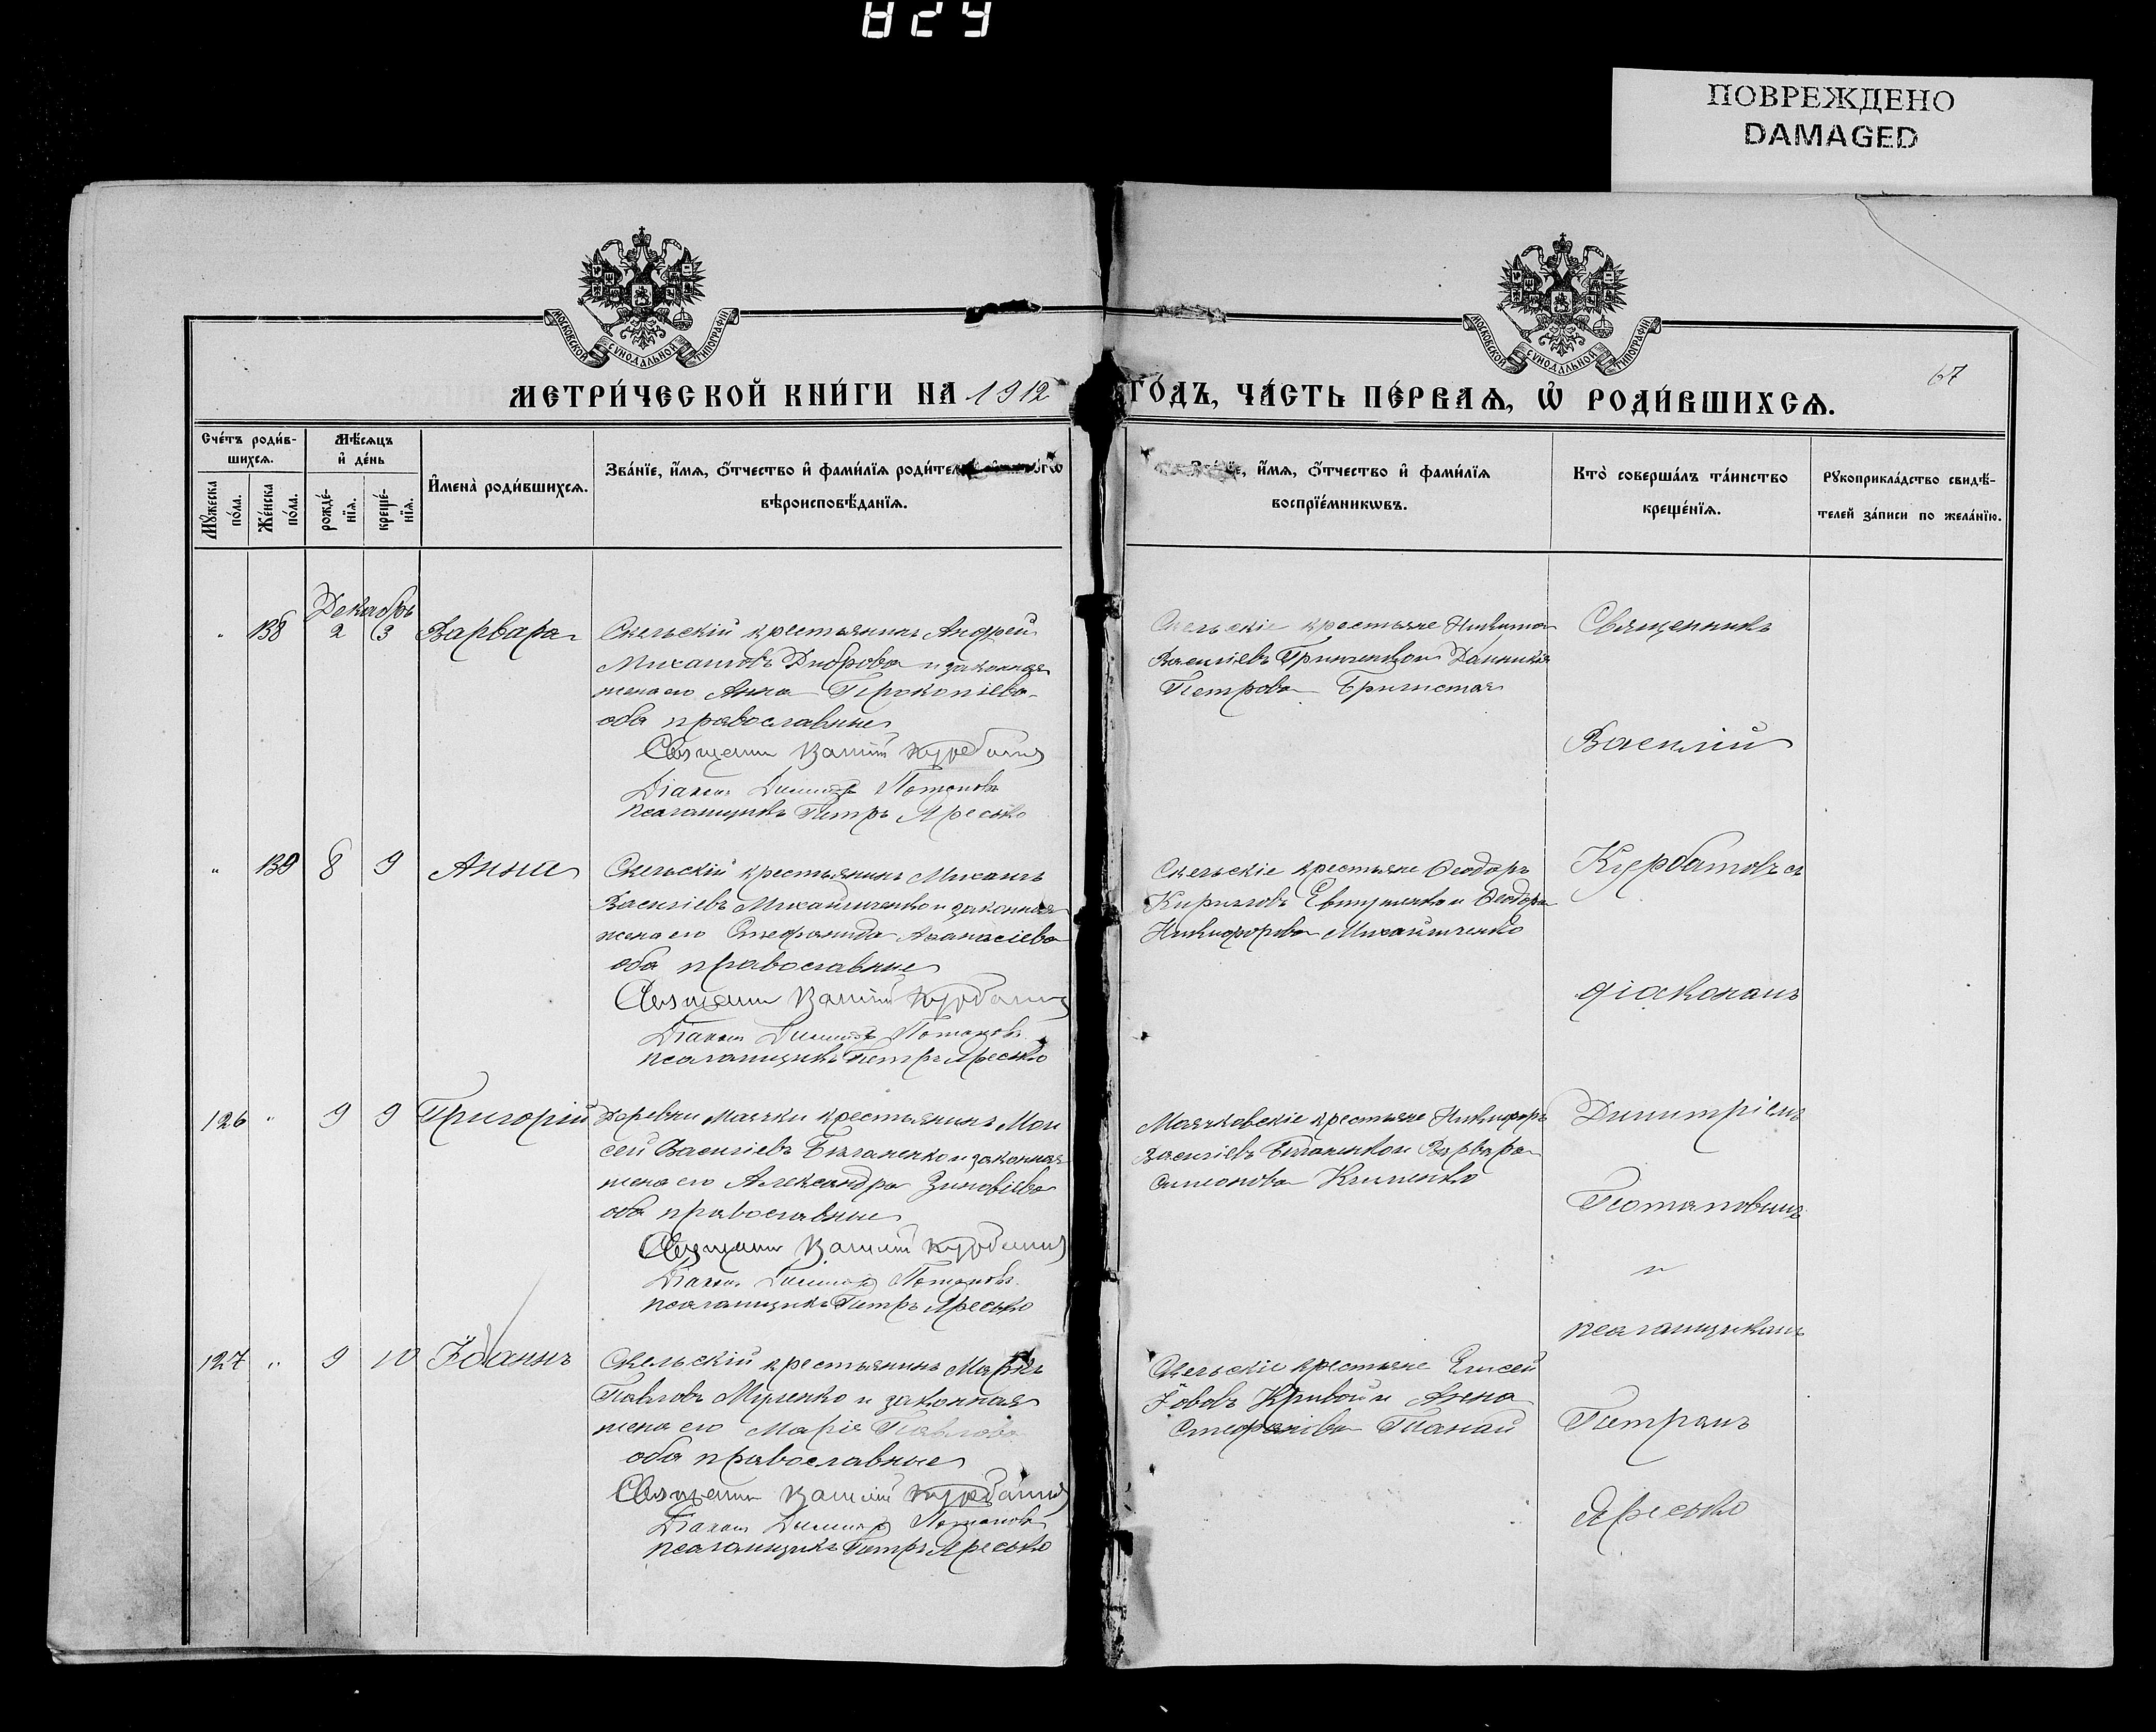 829
ПОВРЕЖДЕНО
DAMAGED
МОСКОВСКОЙ СѴНОДАЛЬНОЙ ТИПОГРАФІИ
МОСКОВСКОЙ СѴНОДАЛЬНОЙ ТИПОГРАФІИ
МЕТРИ́ЧЕСКОЙ КНИ́ГИ НА 1912 ГО́ДЪ, ЧА́СТЬ ПЕ́РВАѦ, Ѡ҆ РОДИ́ВШИХСѦ.
67
Сче́тъ роди́в-
шихсѧ.
Мꙋ́жеска по́ла.
Же́нска по́ла.
Мѣ́сѧцъ
и҆ де́нь
рожде́-нїѧ.
креще́-нїѧ.
И҆мена̀ роди́вшихсѧ.
Зва́нїе, и҆́мѧ, о҆́тчество и҆ фами́лїѧ роди́тел
вѣроисповѣ́данїѧ.
и҆́мѧ, о҆́тчество и҆ фами́лїѧ
воспрїе́мникѡвъ.
Кто̀ соверша́лъ та́инство
креще́нїѧ.
Рꙋкоприкла́дство свидѣ́-
телей за́писи по жела́нїю.
Декабрь
" 138 2 3 Варвара
Скельскій крестьянинъ Андрей
Михаиловъ Диброва и законная
жена его Анна Прокопіева
оба православные
Священ Василій Курбатов
Діакон Димитр Потаповъ
Псаломщикъ Петръ Яресько
Скельскіе крестьяне Никита
Василіевъ Гринченко и
Петрова
" 139 8 9 Анна
Скельскій крестьянинъ Михаилъ
Василіевъ Михайличенко и законная
жена его Стефанида Аѳанасіева
оба православные
Священ Василій Курбатов
Діакон Димитр Потаповъ
Псаломщикъ Петръ Яресько
Скельскіе крестьяне Ѳеодоръ
Кирилловъ Евтушенко и Ѳеодора
Никифорова Михайличенко
126 " 9 9 Григорій
Деревни Маячки крестьянинъ Мои
сей Василіевъ и законная
жена его Александра Зиновіева
оба православные
Священ Василій Курбатов
Діакон Димитр Потаповъ
Псаломщикъ Петръ Яресько
Маячковскіе крестьяне Никифоръ
Василіевъ и Варвара
Симонова Клименко
127 " 9 10 Іоаннъ
Скельскій крестьянинъ Маркъ
Павловъ Муленко и законная
жена его Марія Павлова
оба православные
Священ Василій Курбатов
Діакон Димитр Потаповъ
Псаломщикъ Петръ Яресько
Скельскіе крестьяне Елисей
Іововъ Кривой и Анна
Стефаніева Панай
Священникъ
Василій
Курбатовъ съ
діакономъ
Димитріемъ
Потаповымъ
и
псаломщикомъ
Петромъ
Яресько